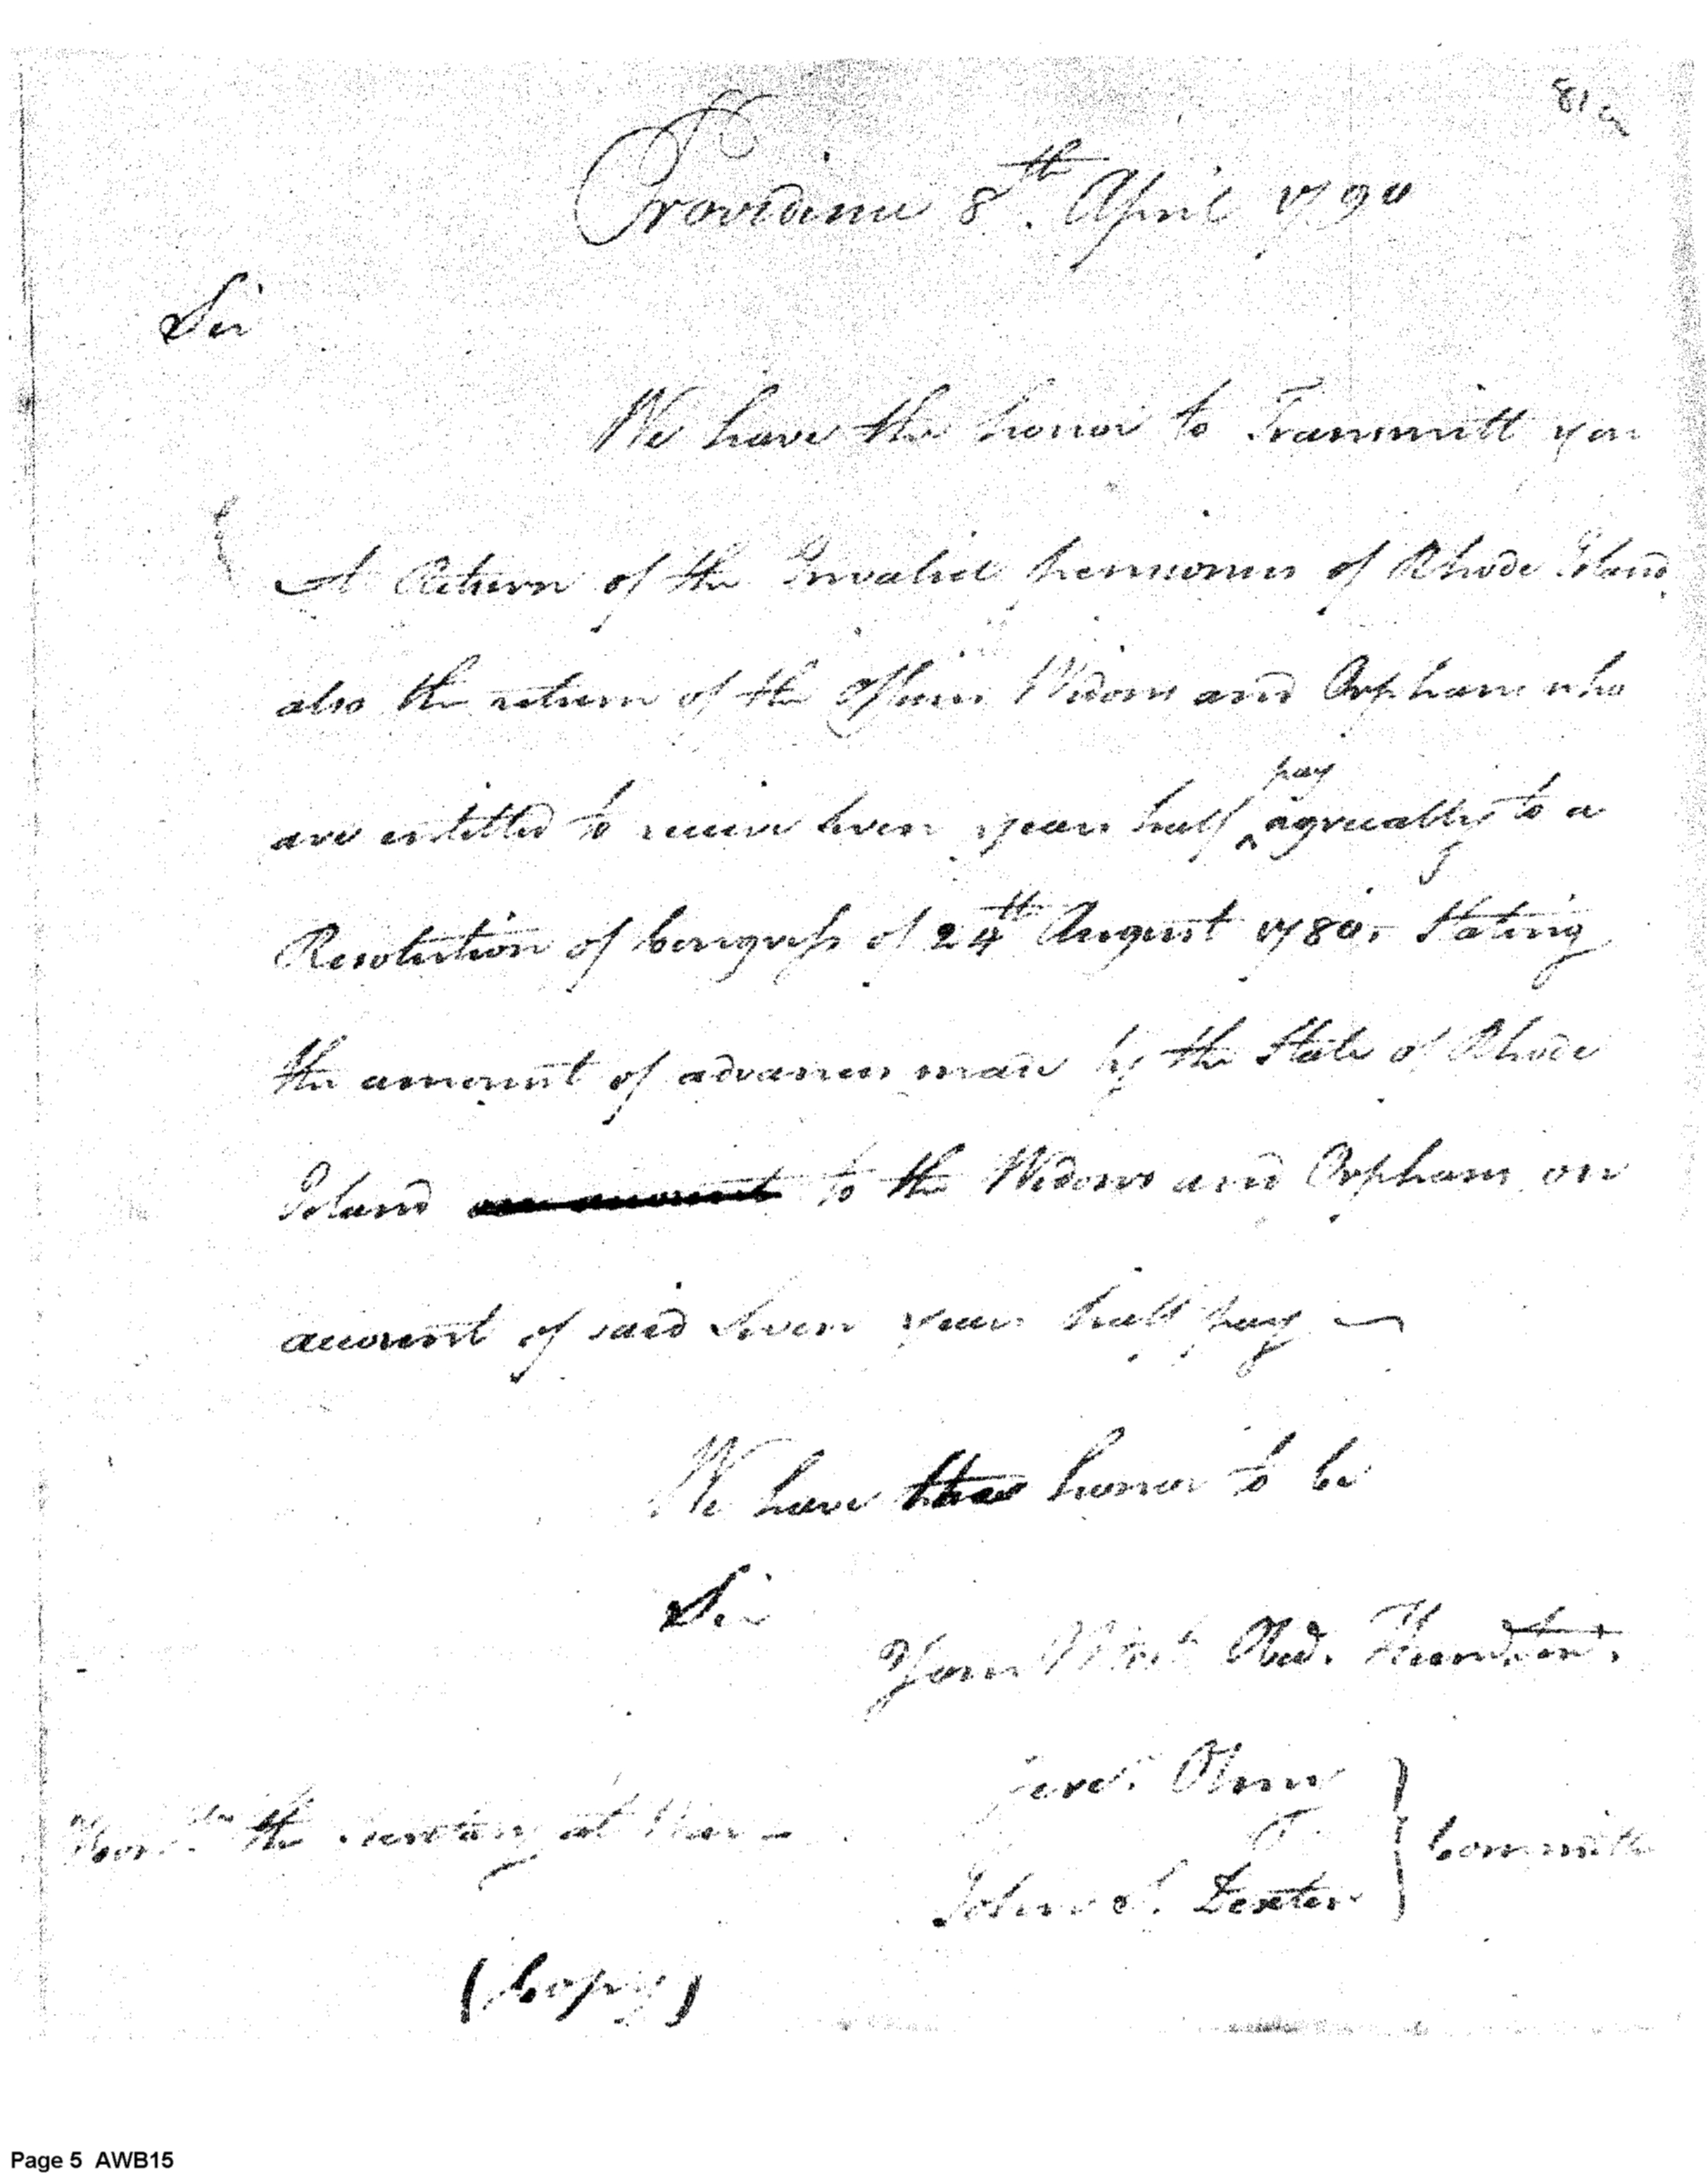 81a
Providence 8th. April 1790
Sir
We have the honor to Transmitt you
A Return of the Invalid pensioners of Rhode Island,
also the return of the Officers Widows and Orphans who
are entitled to receive seven years half ^ pay agreeably to a
Resolution of Congress of 24th August 1780, Stating
the amount of advances made by the State of Rhode
Island to the Widows and Orphans on
account of said seven years half pay
We have the honor to be
Sir
Your Most Obd. Humb.
Jere. Olney
&
John S. Dexter
Committee
the Secretary at War -
(Copy)
Page 5 AWB15